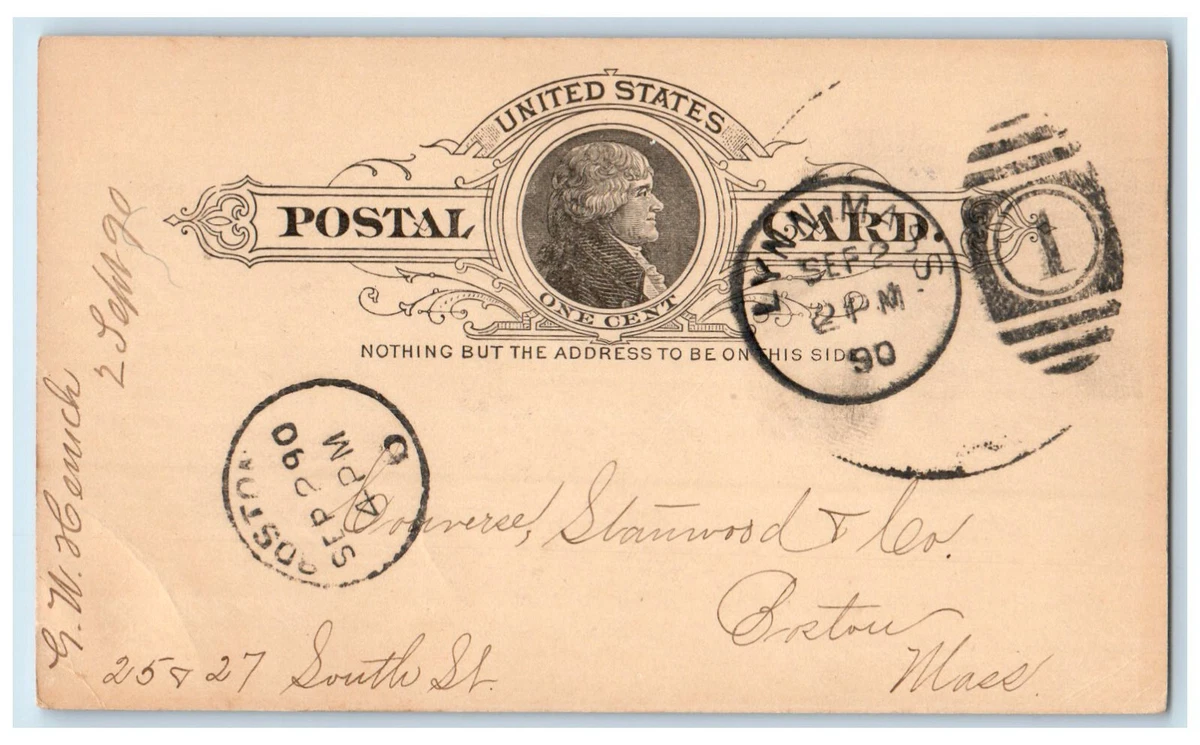 UNITED STATES
POSTAL CARD.
ONE CENT
NOTHING BUT THE ADDRESS TO BE ON THIS SIDE
LYNN, MASS.
SEP 2
2 PM
90
1
BOSTON.
SEP 2 90
4 PM
C
Converse, Stanwood & Co.
Boston
Mass.
25 & 27 South St.
G. W.
2 Sept 90